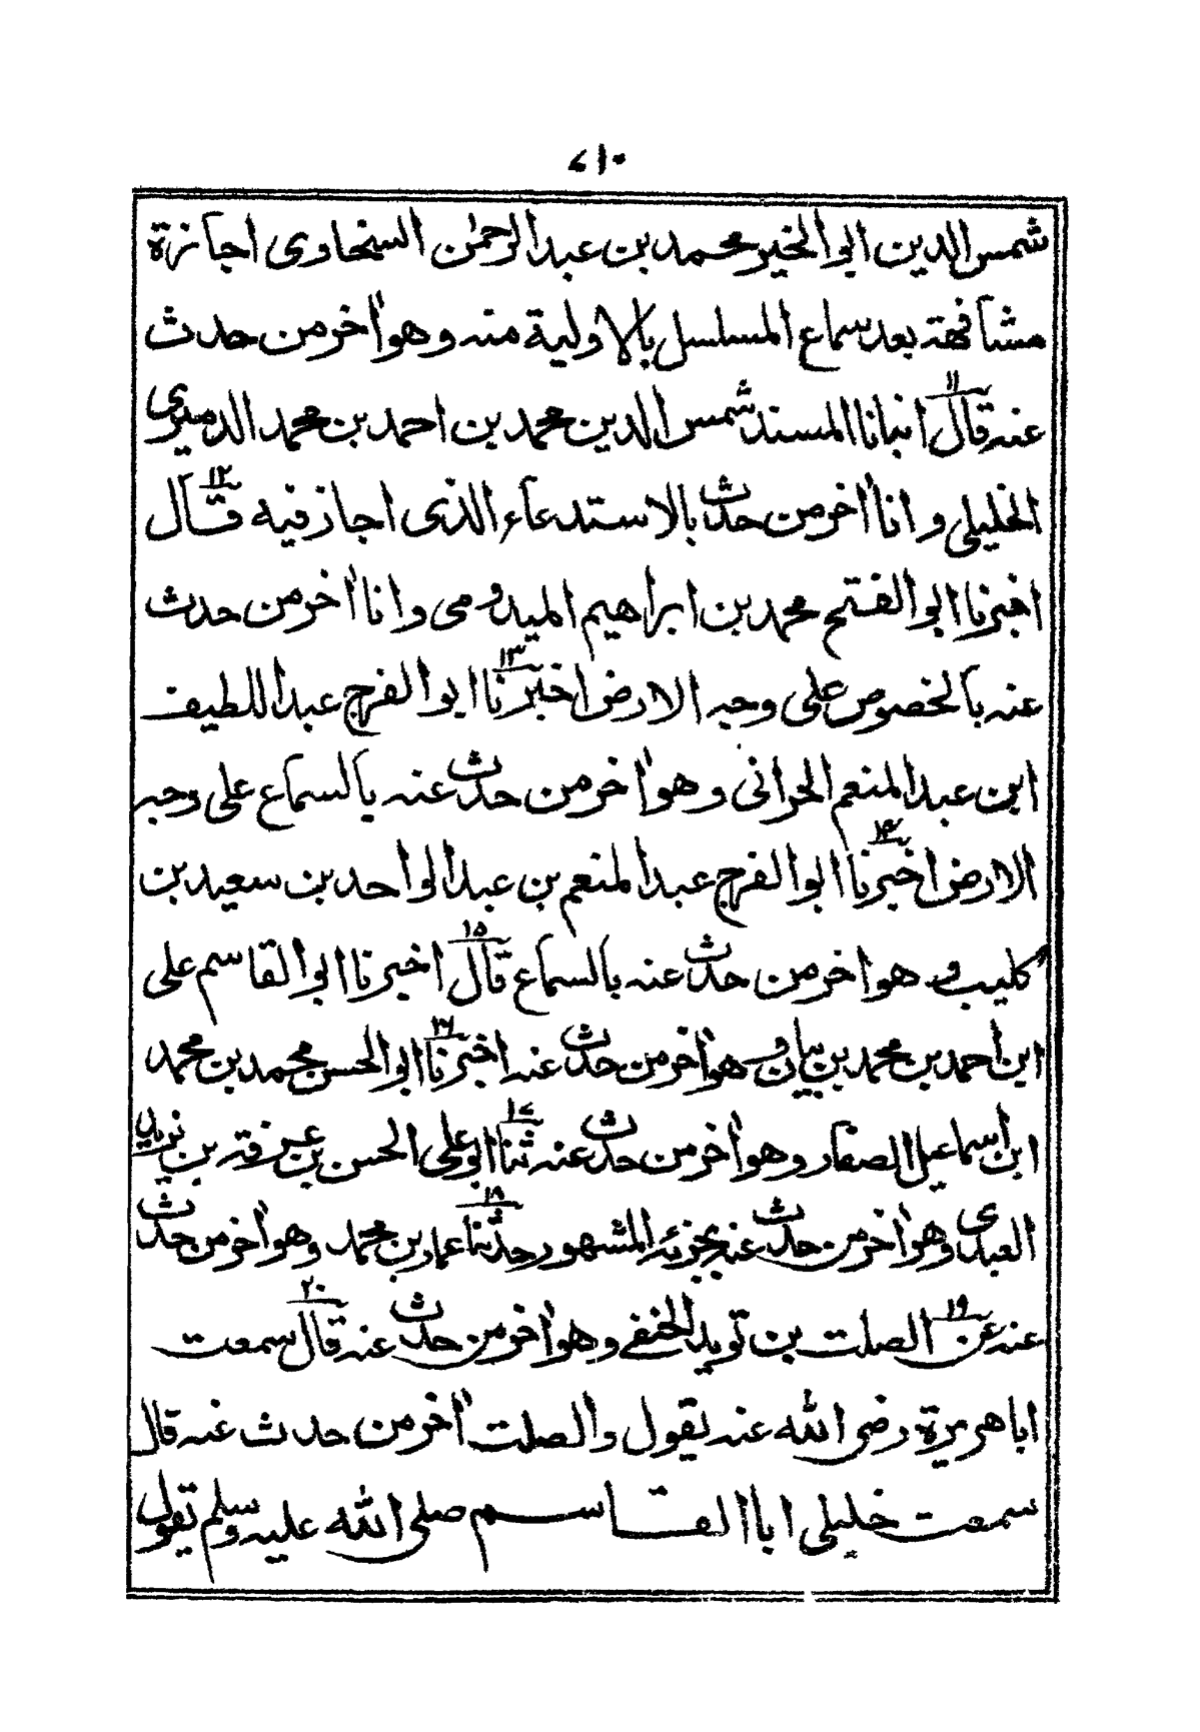 ٧١٠
شمس الدين ابو الخير محمد بن عبد الرحمن السخاوى اجازة
مشافهة بعد سماع المسلسل بالاولية منه وهو اٰخر من حدث
عنه ١١ قال انبانا المسند شمس الدين محمد بن احمد بن محمد الدميرى
الخليلى وانا اٰخر من حدث بالاستدعاء الذى اجاز فيه ١٢ قال
اخبرنا ابو الفتح محمد بن ابراهيم الميدومى وانا اٰخر من حدث
عنه بالخصوص على وجه الارض ١٣ اخبرنا ابو الفرج عبد اللطيف
ابن عبد المنعم الحرانى وهو اٰخر من حدث عنه بالسماع على وجه
الارض ١٤ اخبرنا ابو الفرج عبد المنعم بن عبد الواحد بن سعيد بن
كليب وهو اٰخر من حدث عنه بالسماع ١٥ قال اخبرنا ابو القاسم على
ابن احمد بن محمد بن بيان وهو اٰخر من حدث عنه ١٦ اخبرنا ابو الحسن محمد بن محمد
ابن اسماعيل الصفار وهو اٰخر من حدث عنه ١٧ ثنا ابو على الحسن بن عرفة بن يزيد
العبدى وهو اٰخر من حدث عنه بجزئه المشهور ١٨ حدثنا عمار بن محمد وهو اٰخر من حدث
عنه ١٩ عن الصلت بن قويد الحنفى وهو اٰخر من حدث عنه ٢٠ قال سمعت
ابا هريرة رضى الله عنه يقول والصلت اٰخر من حدث عنه قال
سمعت خليلى ابا القاسم صلى الله عليه وسلم يقول